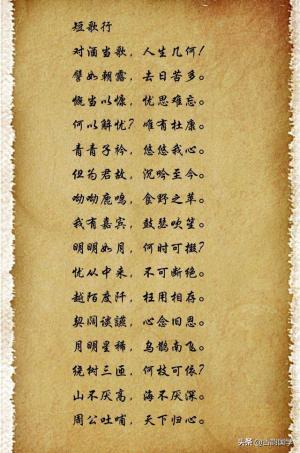 短歌行
对酒当歌，人生几何！
譬如朝露，去日苦多。
慨当以慷，忧思难忘。
何以解忧？唯有杜康。
青青子衿，悠悠我心。
但为君故，沉吟至今。
呦呦鹿鸣，食野之苹。
我有嘉宾，鼓瑟吹笙。
明明如月，何时可掇？
忧从中来，不可断绝。
越陌度阡，枉用相存。
契阔谈讌，心念旧恩。
月明星稀，乌鹊南飞。
绕树三匝，何枝可依？
山不厌高，海不厌深。
周公吐哺，天下归心。
头条@古韵国学